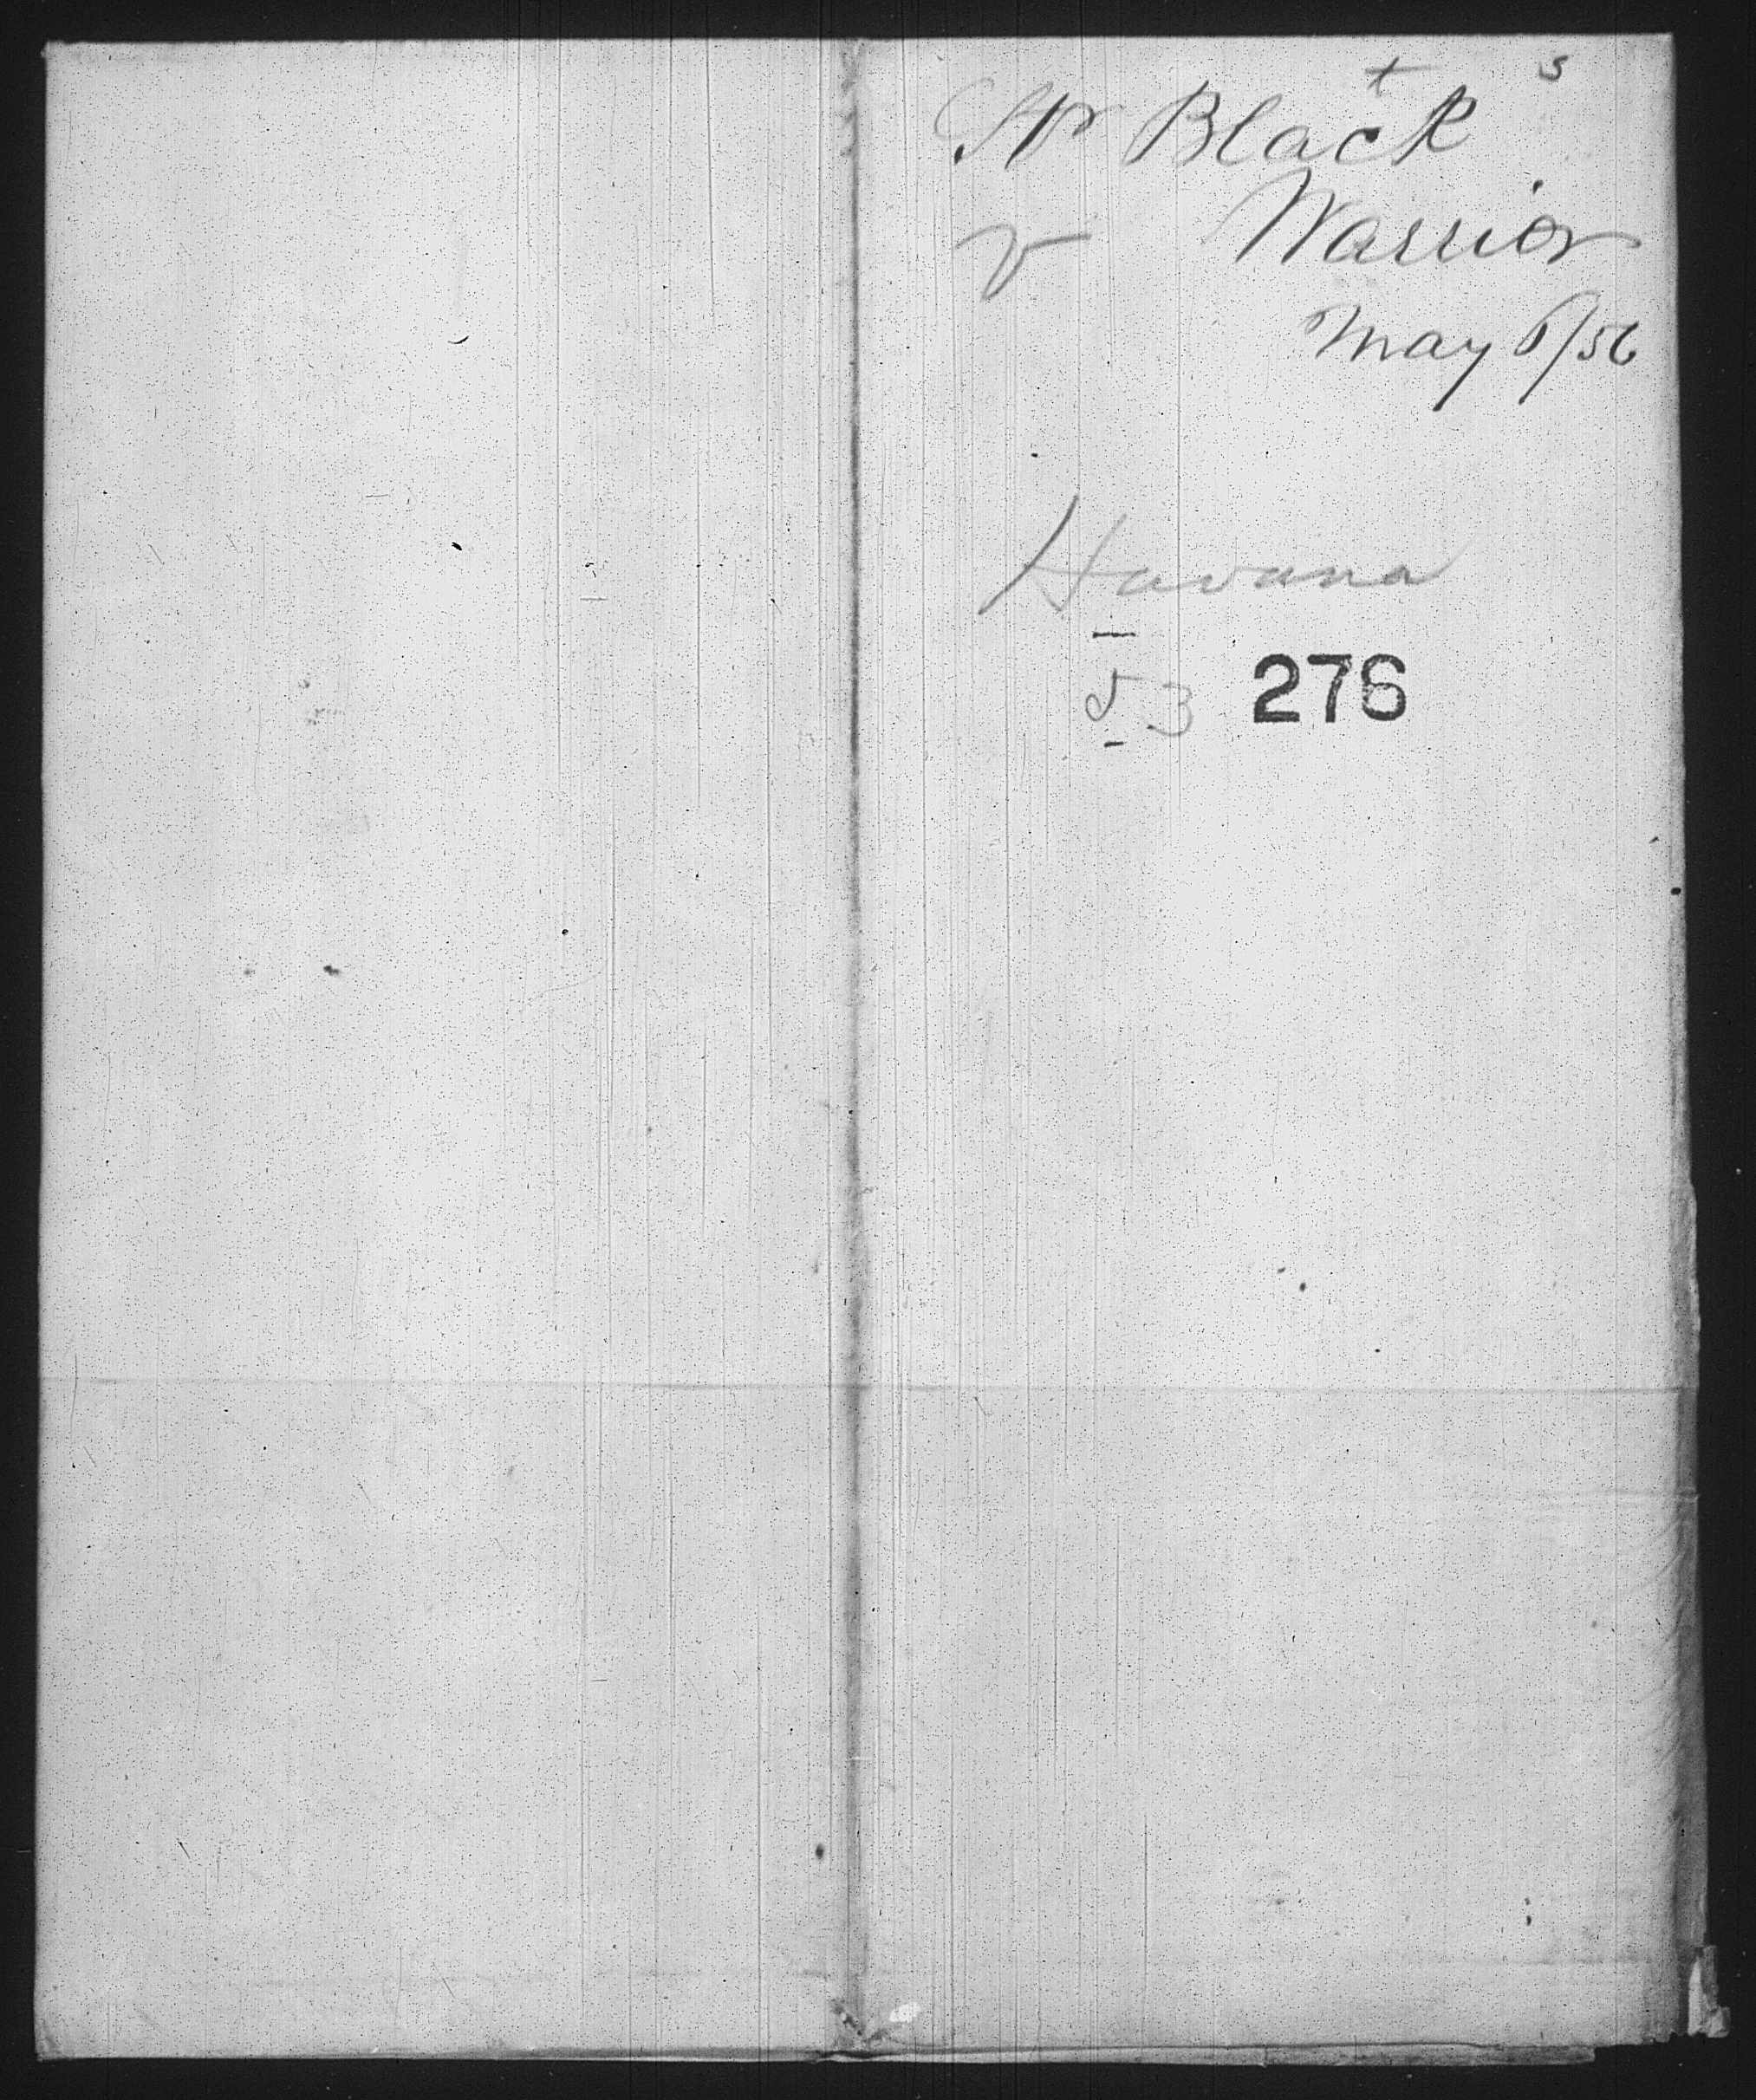 s
Str Black
Warrior
May 6/56
Havana
53 276